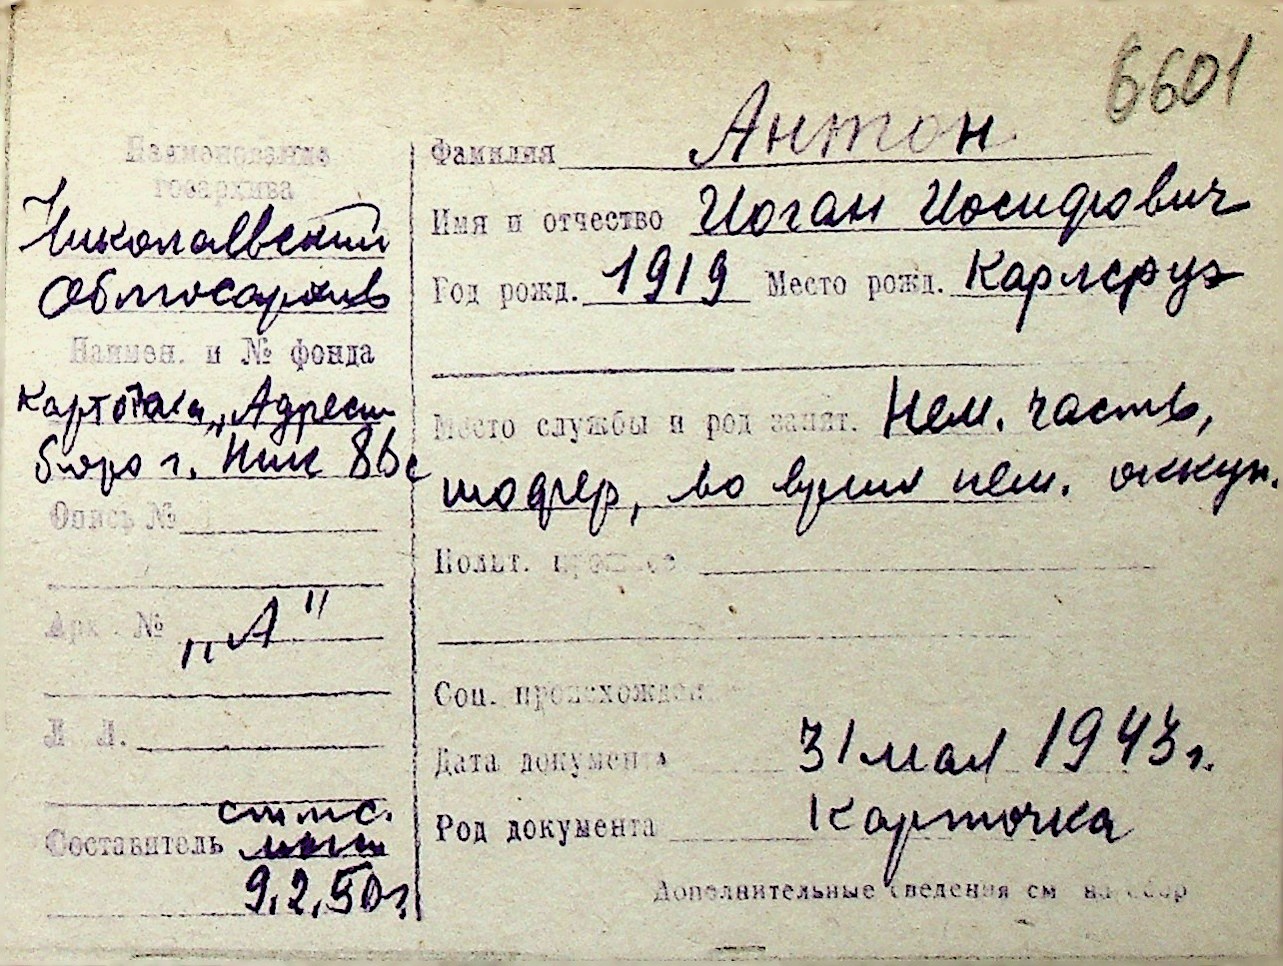 6601
Наименование
госархива
Николаевский
Облгосархив
Наимен. и № фонда
Картотека „Адресн
бюро г. Ник
Опись №
Арх. № „А"
Л. Л.
Составитель
9.2.50 г.
Фамилия Антон
Имя и отчество Иоган Иосифович
Год рожд. 1919 Место рожд. Карлсруэ
Место службы и род занят. Нем. часть,
шофер, во время нем. оккуп.
Полит. прошлое
Соц. происхожден
Дата документа 31 мая 1943 г.
Род документа Карточка
Дополнительные сведения см. на обор